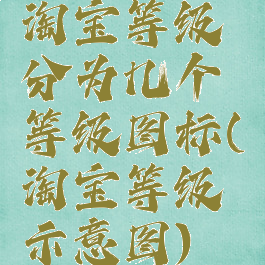 淘宝等级
分为几个
等级图标(
淘宝等级
示意图)